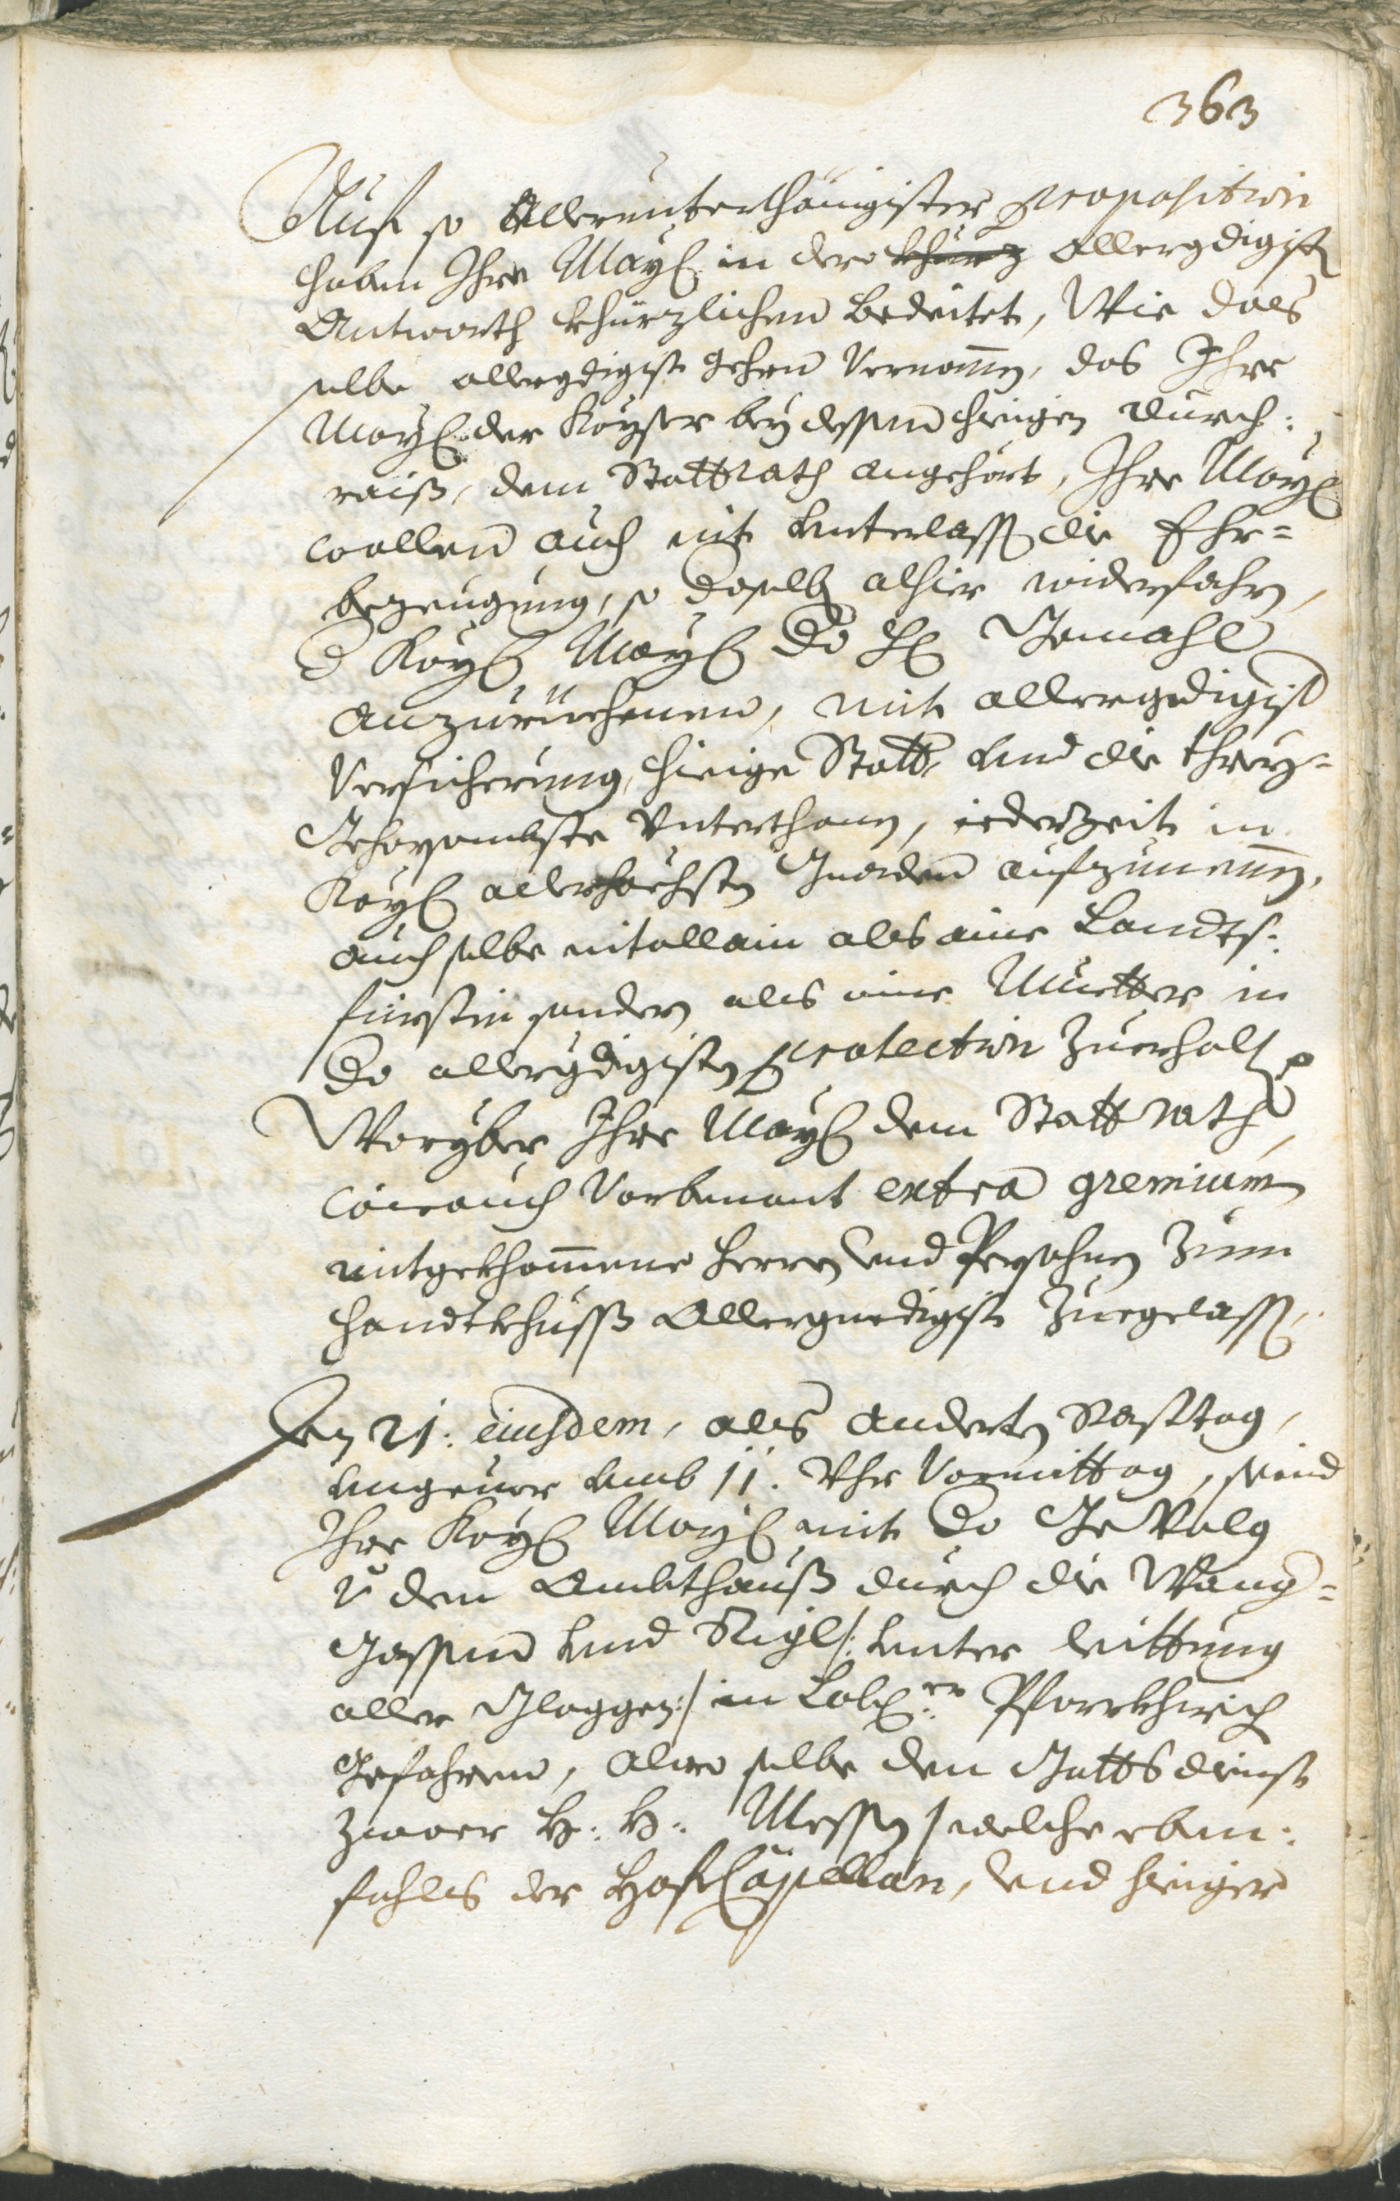 363
Auf so Allerunterthänigister proposition
haben Ihre May: in dero khurz allergdigist
Antworth khürzlichen bedeitet, Wie dass
selbe allergdigist gehrn vernomen, das Ihre
May: der Kayser bey dessen hieigen durch:
raiß, dem Stattrath angehört, Ihre May:
wollen auch nit unterlassen die Ehr=
bezeugung, so daselbs alhier widerfahrn,
d Kay: May: do H: Gemahl
anzurüehmen, mit allergdigist
Versicherung, hieige Statt und die threy=
Gehorsambste Unterthanen, iederzeit in
Kay: allerhöchsten Gnaden aufzunemen,
auch selbe nit allain als aine Landts:
fürstin sondern als eine Muetter in
do allergdigisten protection zuerhalten
Woryber Ihre May: dem Stattrath,
wie auch vorbenant extra gremium
mitgekhomene Herrn und Persohnen zum
Handtkhuss Allergnedigist zuegelassen.
Den 21: eiusdem, als anderten Rasttag,
ungeuer umb 11. Uhr Vormittag, seind
Ihre Kay: May: mit do Gevolg
v dem Ambthauß durch die Wang=
Gassen und /: unter leittung
aller Gloggen :/ in Lob:er Pfarrkhirch
gefahren, alwo selbe den Gottsdienst
zwaer H: H: Messen / welche eben:
fahls der Hof Capellan, und hieiger